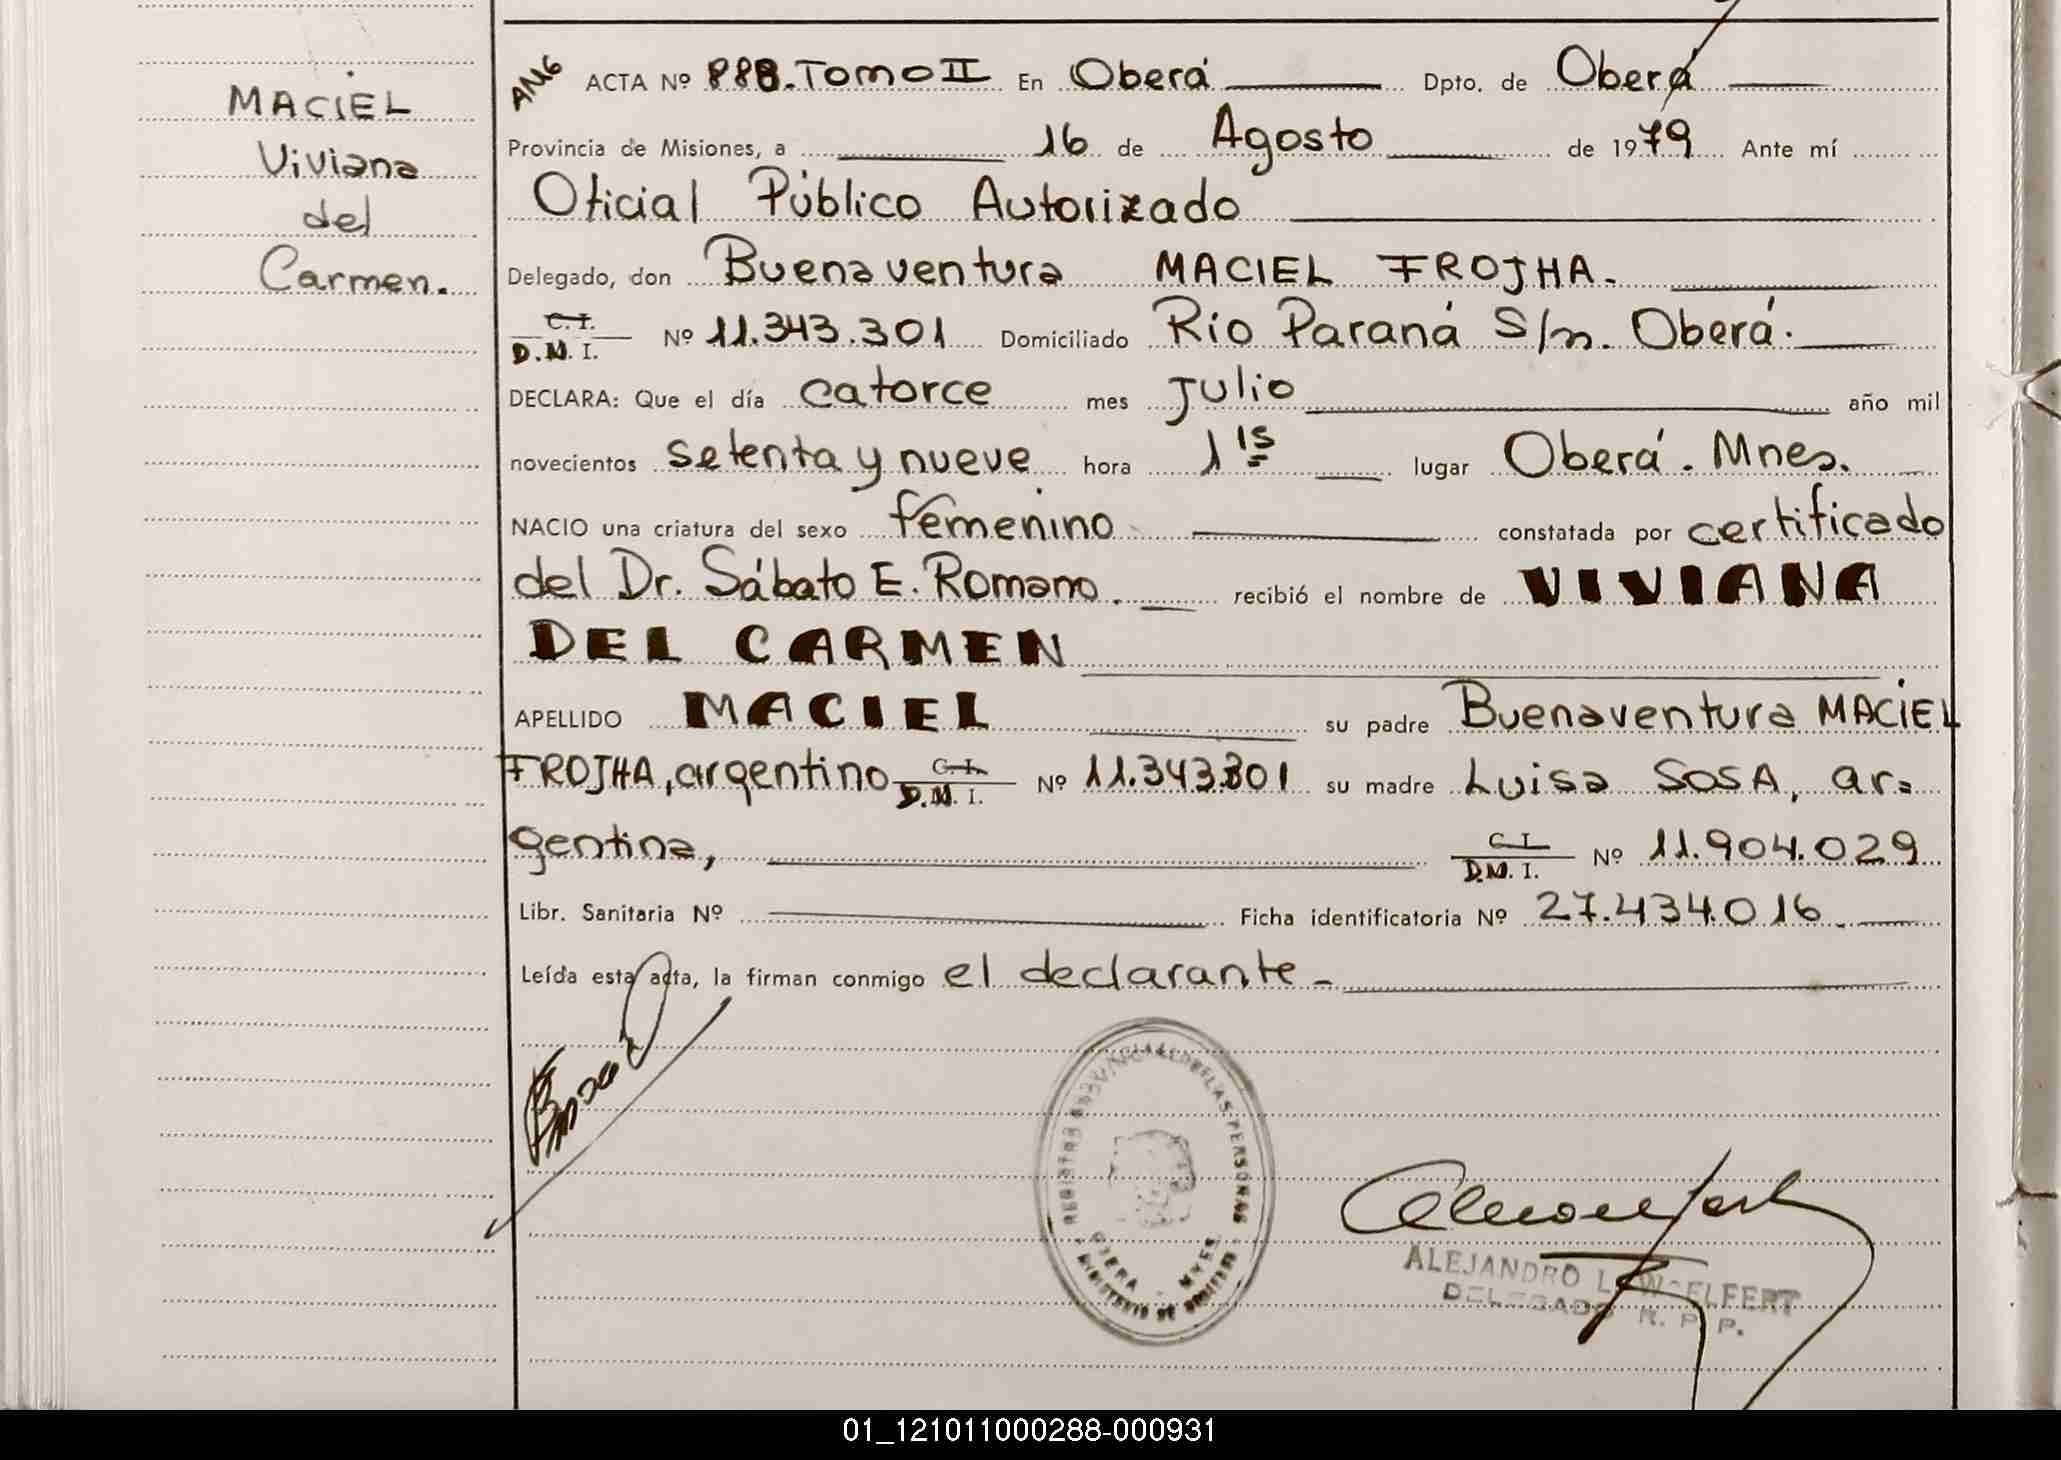 MACIEL
Viviana
del
Carmen.
ACTA Nº 888. Tomo II En Oberá Dpto. de Oberá
Provincia de Misiones, a 16 de Agosto de 1979 Ante mí
Oficial Público Autorizado
Delegado, don Buenaventura MACIEL FROJHA.
C. I.
D.N. I. Nº 11.343.301 Domiciliado Río Paraná S/n. Oberá.
DECLARA: Que el día catorce mes Julio año mil
novecientos setenta y nueve hora 1 15 lugar Oberá. Mnes.
NACIO una criatura del sexo femenino constatada por certificado
del Dr. Sábato E. Romano. recibió el nombre de VIVIANA
DEL CARMEN
APELLIDO MACIEL su padre Buenaventura MACIEL
FROJHA, argentino C. I. D.N. I. Nº 11.343.301 su madre Luisa SOSA, ar=
gentina, C. I. D.N. I. Nº 11.904.029
Libr. Sanitaria Nº Ficha identificatoria Nº 27.434.016
Leída esta acta, la firman conmigo el declarante
REGISTRO PROVINCIAL DE LAS PERSONAS
OBERA - MNES
ALEJANDRO L. WOELFERT
DELEGADO R. P. P.
01_121011000288-000931